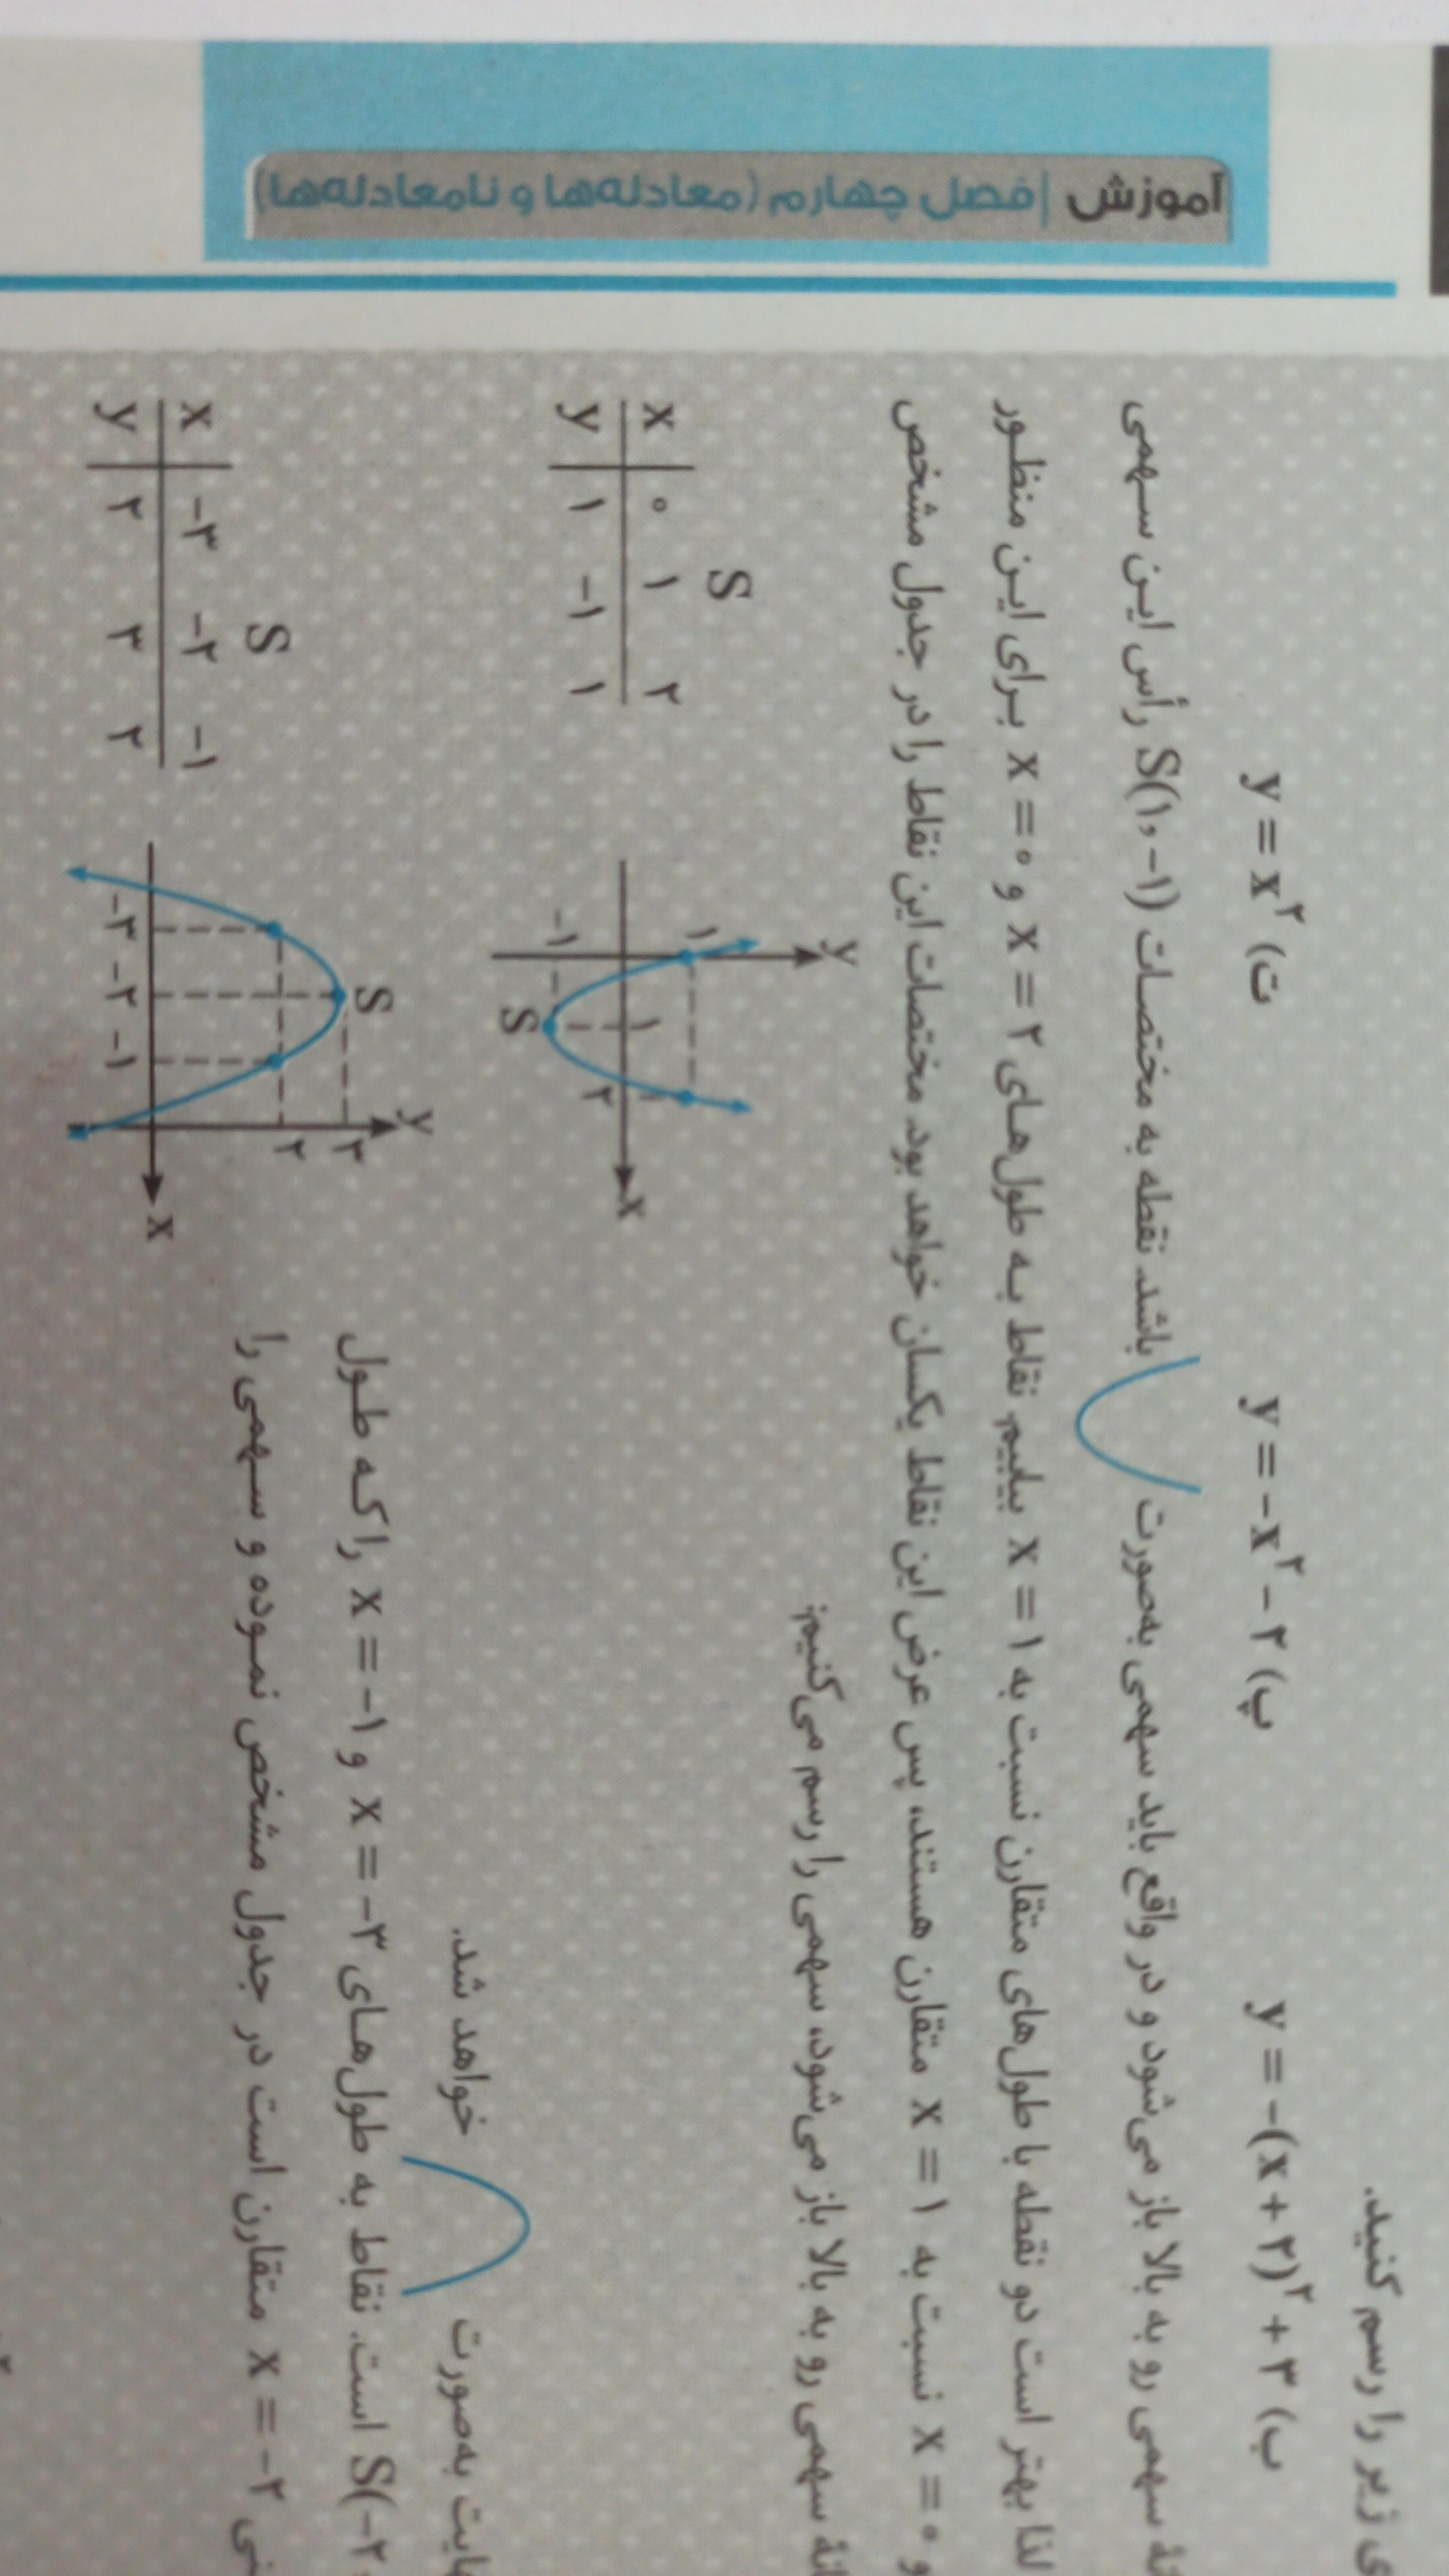 آموزش | فصل چهارم (معادله‌ها و نامعادله‌ها)
زیر را رسم کنید.
ب) y = -(x + ۲)^۲ + ۳
پ) y = -x^۲ - ۲
ت) y = x^۲
سهمی رو به بالا باز می‌شود و در واقع باید سهمی به‌صورت باشد. نقطه به مختصات S(۱, -۱) رأس این سهمی
لذا بهتر است دو نقطه با طول‌های متقارن نسبت به x = ۱ بیابیم. نقاط به طول‌های x = ۲ و x = ۰ برای این منظور
و x = ۰ نسبت به x = ۱ متقارن هستند، پس عرض این نقاط یکسان خواهد بود. مختصات این نقاط را در جدول مشخص
سهمی رو به بالا باز می‌شود، سهمی را رسم می‌کنیم:
S
x ۰ ۱ ۲
y ۱ -۱ ۱
y
۱
-۱
۱
۲
S
x
به‌صورت خواهد شد.
S(-۲, است. نقاط به طول‌های x = -۳ و x = -۱ را که طول
x = -۲ متقارن است در جدول مشخص نموده و سهمی را
S
x -۳ -۲ -۱
y ۲ ۳ ۲
S
y
۳
۲
-۳ -۲ -۱
x